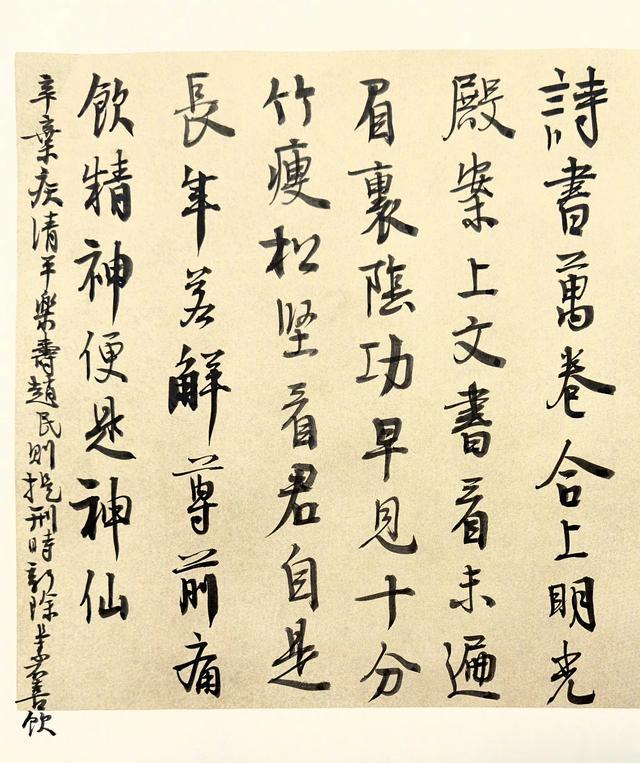 詩書萬卷合上明光
殿案上文書看未遍
眉裏陰功早見十分
竹瘦松堅看君自是
長年若解尊前痛
飲精神便是神仙
辛棄疾清平樂壽趙民則提刑時新除素不喜飲